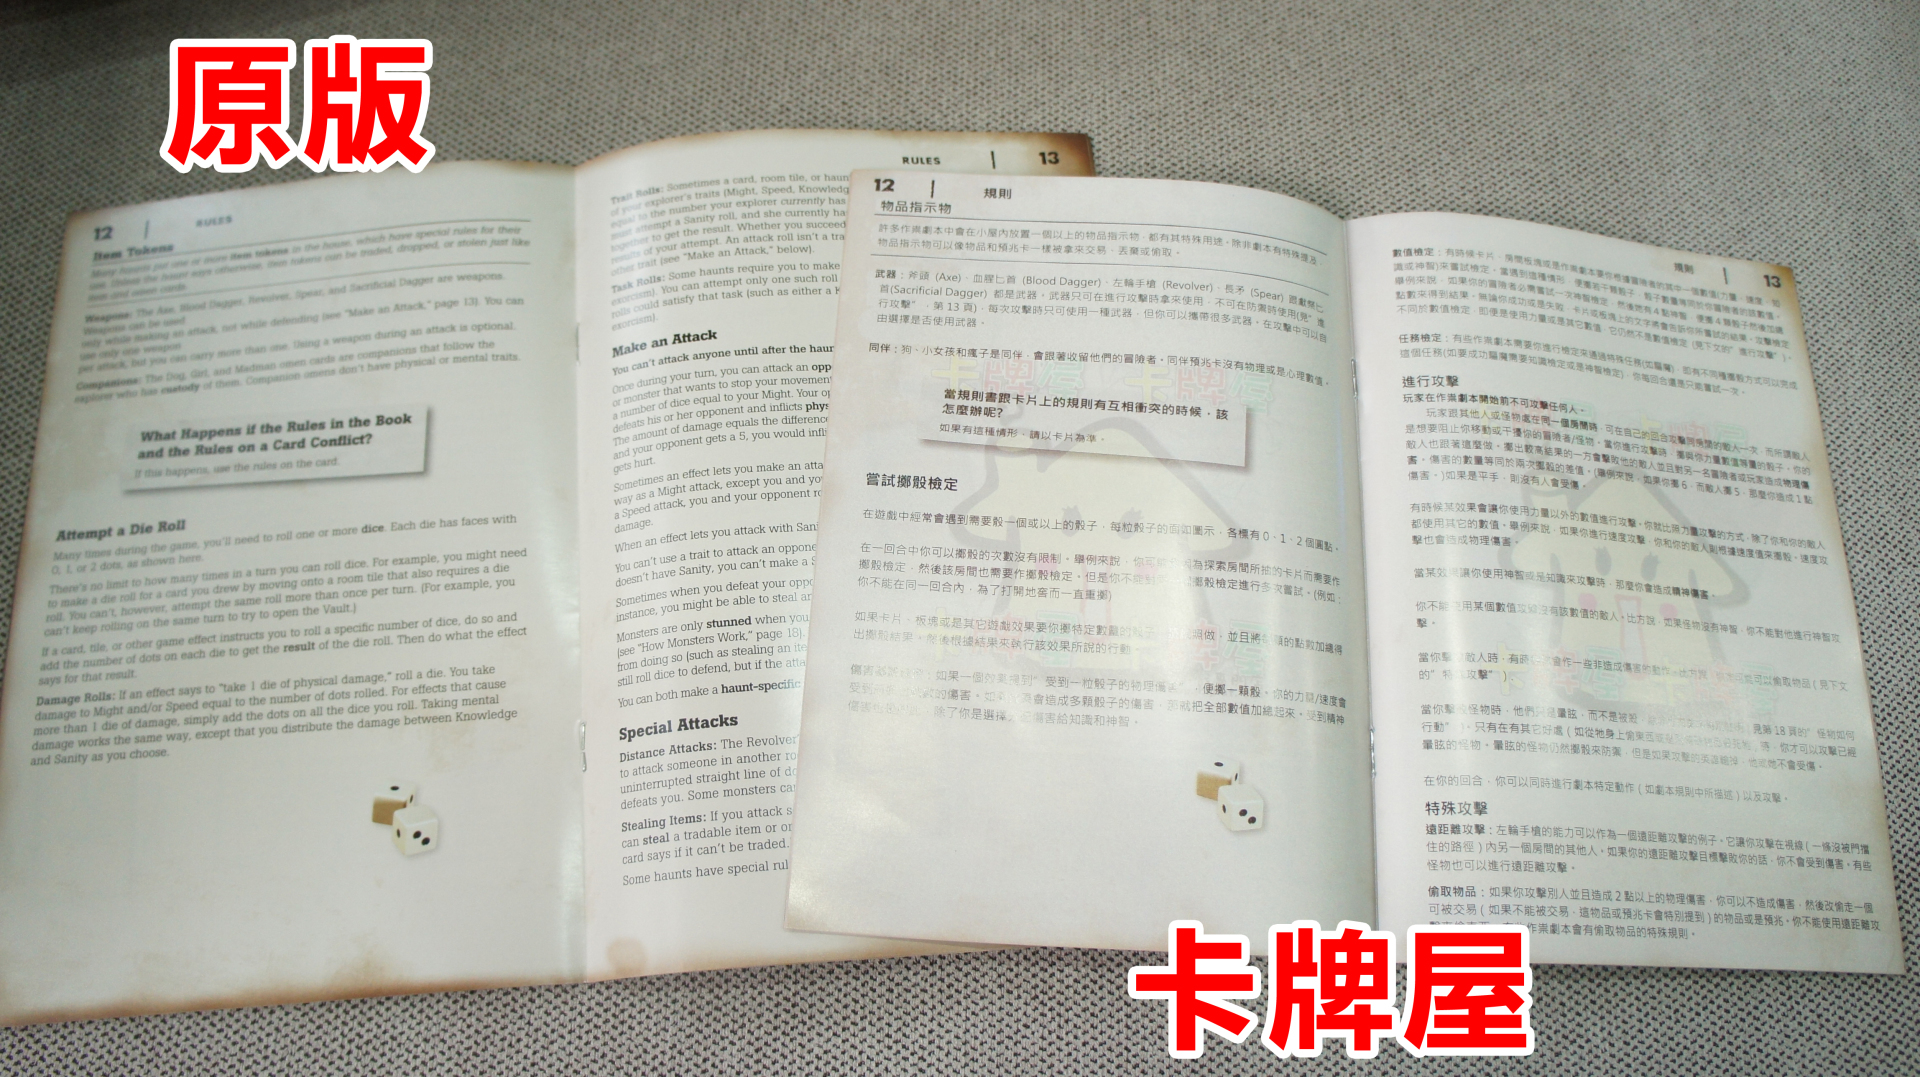 原版
12 | RULES
Item Tokens
Many haunts put one or more item tokens in the house, which have special rules for their
use. Unless the haunt says otherwise, item tokens can be traded, dropped, or stolen just like
item and omen cards.
Weapons: The Axe, Blood Dagger, Revolver, Spear, and Sacrificial Dagger are weapons.
Weapons can be used
only while making an attack, not while defending (see "Make an Attack," page 13). You can
use only one weapon
per attack, but you can carry more than one. Using a weapon during an attack is optional.
Companions: The Dog, Girl, and Madman omen cards are companions that follow the
explorer who has custody of them. Companion omens don't have physical or mental traits.
What Happens if the Rules in the Book
and the Rules on a Card Conflict?
If this happens, use the rules on the card.
Attempt a Die Roll
Many times during the game, you'll need to roll one or more dice. Each die has faces with
0, 1, or 2 dots, as shown here.
There's no limit to how many times in a turn you can roll dice. For example, you might need
to make a die roll for a card you drew by moving onto a room tile that also requires a die
roll. You can't, however, attempt the same roll more than once per turn. (For example, you
can't keep rolling on the same turn to try to open the Vault.)
If a card, tile, or other game effect instructs you to roll a specific number of dice, do so and
add the number of dots on each die to get the result of the die roll. Then do what the effect
says for that result.
Damage Rolls: If an effect says to "take 1 die of physical damage," roll a die. You take
damage to Might and/or Speed equal to the number of dots rolled. For effects that cause
more than 1 die of damage, simply add the dots on all the dice you roll. Taking mental
damage works the same way, except that you distribute the damage between Knowledge
and Sanity as you choose.
RULES | 13
Trait Rolls: Sometimes a card, room tile, or haun
of your explorer's traits (Might, Speed, Knowledg
equal to the number your explorer currently has
must attempt a Sanity roll, and she currently ha
together to get the result. Whether you succeed
results of your attempt. An attack roll isn't a tra
other trait (see "Make an Attack," below).
Task Rolls: Some haunts require you to make
exorcism). You can attempt only one such roll
rolls could satisfy that task (such as either a K
exorcism).
Make an Attack
You can't attack anyone until after the haun
Once during your turn, you can attack an opp
or monster that wants to stop your movement
a number of dice equal to your Might. Your op
defeats his or her opponent and inflicts phys
The amount of damage equals the difference
and your opponent gets a 5, you would infli
gets hurt.
Sometimes an effect lets you make an atta
way as a Might attack, except you and yo
a Speed attack, you and your opponent ro
damage.
When an effect lets you attack with Sani
You can't use a trait to attack an oppone
doesn't have Sanity, you can't make a S
Sometimes when you defeat your oppo
instance, you might be able to steal an
Monsters are only stunned when you
(see "How Monsters Work," page 18).
from doing so (such as stealing an ite
still roll dice to defend, but if the atta
You can both make a haunt-specific
Special Attacks
Distance Attacks: The Revolver
to attack someone in another ro
uninterrupted straight line of do
defeats you. Some monsters ca
Stealing Items: If you attack s
can steal a tradable item or on
card says if it can't be traded.
Some haunts have special rul
12 | 規則
物品指示物
許多作祟劇本中會在小屋內放置一個以上的物品指示物，都有其特殊用途。除非劇本有特殊提及，
物品指示物可以像物品和預兆卡一樣被拿來交易、丟棄或偷取。
武器：斧頭 (Axe)、血腥匕首 (Blood Dagger)、左輪手槍 (Revolver)、長矛 (Spear) 跟獻祭匕
首(Sacrificial Dagger) 都是武器。武器只可在進行攻擊時拿來使用，不可在防禦時使用(見"進
行攻擊"，第 13 頁)，每次攻擊時只可使用一種武器，但你可以攜帶很多武器。在攻擊中可以自
由選擇是否使用武器。
同伴：狗、小女孩和瘋子是同伴，會跟著收留他們的冒險者。同伴預兆卡沒有物理或是心理數值。
當規則書跟卡片上的規則有互相衝突的時候，該
怎麼辦呢?
如果有這種情形，請以卡片為準。
嘗試擲骰檢定
在遊戲中經常會遇到需要骰一個或以上的骰子，每粒骰子的面如圖示，各標有 0、1、2 個圓點。
在一回合中你可以擲骰的次數沒有限制。舉例來說，你可能因為探索房間所抽的卡片而需要作
擲骰檢定，然後該房間也需要作擲骰檢定。但是你不能對同擲骰檢定進行多次嘗試。(例如：
你不能在同一回合內，為了打開地窖而一直重擲)
如果卡片、板塊或是其它遊戲效果要你擲特定數量的骰子，照做，並且將各顆的點數加總得
出擲骰結果。然後根據結果來執行該效果所說的行動
如果一個效果提到"受到一粒骰子的物理傷害"，便擲一顆骰。你的力量/速度會
受到傷害。如果會造成多顆骰子的傷害，則就把全部數值加總起來。受到精神
傷害除了你是選擇傷害給知識和神智。
規則 | 13
數值檢定：有時候卡片、房間板塊或是作祟劇本要你根據冒險者的其中一個數值(力量、速度、知
識或神智)來嘗試檢定。當遇到這種情形，便擲若干顆骰子，骰子數量等同於你冒險者的該數值。
舉例來說，如果你的冒險者必需嘗試一次神智檢定，然後她有 4 點神智，便擲 4 顆骰子然後加總
點數來得到結果。無論你成功或是失敗，卡片或板塊上的文字將會告訴你所嘗試的結果。攻擊檢定
不同於數值檢定，即便是使用力量或是其它數值，它仍然不是數值檢定 (見下文的"進行攻擊")。
任務檢定：有些作祟劇本需要你進行檢定來通過特殊任務(如驅魔)，即有不同種擲骰方式可以完成
這個任務(如要成功驅魔需要知識檢定或是神智檢定)，你每回合還是只能嘗試一次。
進行攻擊
玩家在作祟劇本開始前不可攻擊任何人。
玩家跟其他人或怪物處在同一個房間時，可在自己的回合攻擊同房間的敵人一次，而所謂敵人
是想要阻止你移動或干擾你的冒險者/怪物。當你進行攻擊時，擲與你力量數值等量的骰子，你的
敵人也跟著這麼做。擲出較高結果的一方會擊敗他的敵人並且對另一名冒險者或玩家造成物理傷
害。傷害的數量等同於兩次擲骰的差值。(舉例來說，如果你擲 6，而敵人擲 5，那麼你造成 1 點
傷害。)如果是平手，則沒有人會受傷。
有時候某效果會讓你使用力量以外的數值進行攻擊。你就比照力量攻擊的方式，除了你和你的敵人
都使用其它的數值。舉例來說，如果你進行速度攻擊，你和你的敵人則根據速度值來擲骰。速度攻
擊也會造成物理傷害。
當某效果讓你使用神智或是知識來攻擊時，那麼你會造成精神傷害。
你不能使用某個數值攻擊沒有該數值的敵人。比方說，如果怪物沒有神智，你不能對他進行神智攻
擊。
當你擊敗敵人時，有時你會作一些非造成傷害的動作。比方說，你可以偷取物品 ( 見下文
的"特殊攻擊")
當你擊敗怪物時，他們只是暈眩，而不是被殺 見第 18 頁的"怪物如何
行動")。只有在有其它好處 ( 如從牠身上偷東西 時，你才可以攻擊已經
暈眩的怪物。暈眩的怪物仍然擲骰來防禦，但是如果攻擊的英雄輸掉，他或她不會受傷。
在你的回合，你可以同時進行劇本特定動作 ( 如劇本規則中所描述 ) 以及攻擊。
特殊攻擊
遠距離攻擊：左輪手槍的能力可以作為一個遠距離攻擊的例子。它讓你攻擊在視線 ( 一條沒被門擋
住的路徑 ) 內另一個房間的其他人。如果你的遠距離攻擊目標擊敗你的話，你不會受到傷害。有些
怪物也可以進行遠距離攻擊。
偷取物品：如果你攻擊別人並且造成 2 點以上的物理傷害，你可以不造成傷害，然後改偷走一個
可被交易 ( 如果不能被交易，這物品或預兆卡會特別提到 ) 的物品或是預兆。你不能使用遠距離攻
作祟劇本會有偷取物品的特殊規則。
卡牌屋